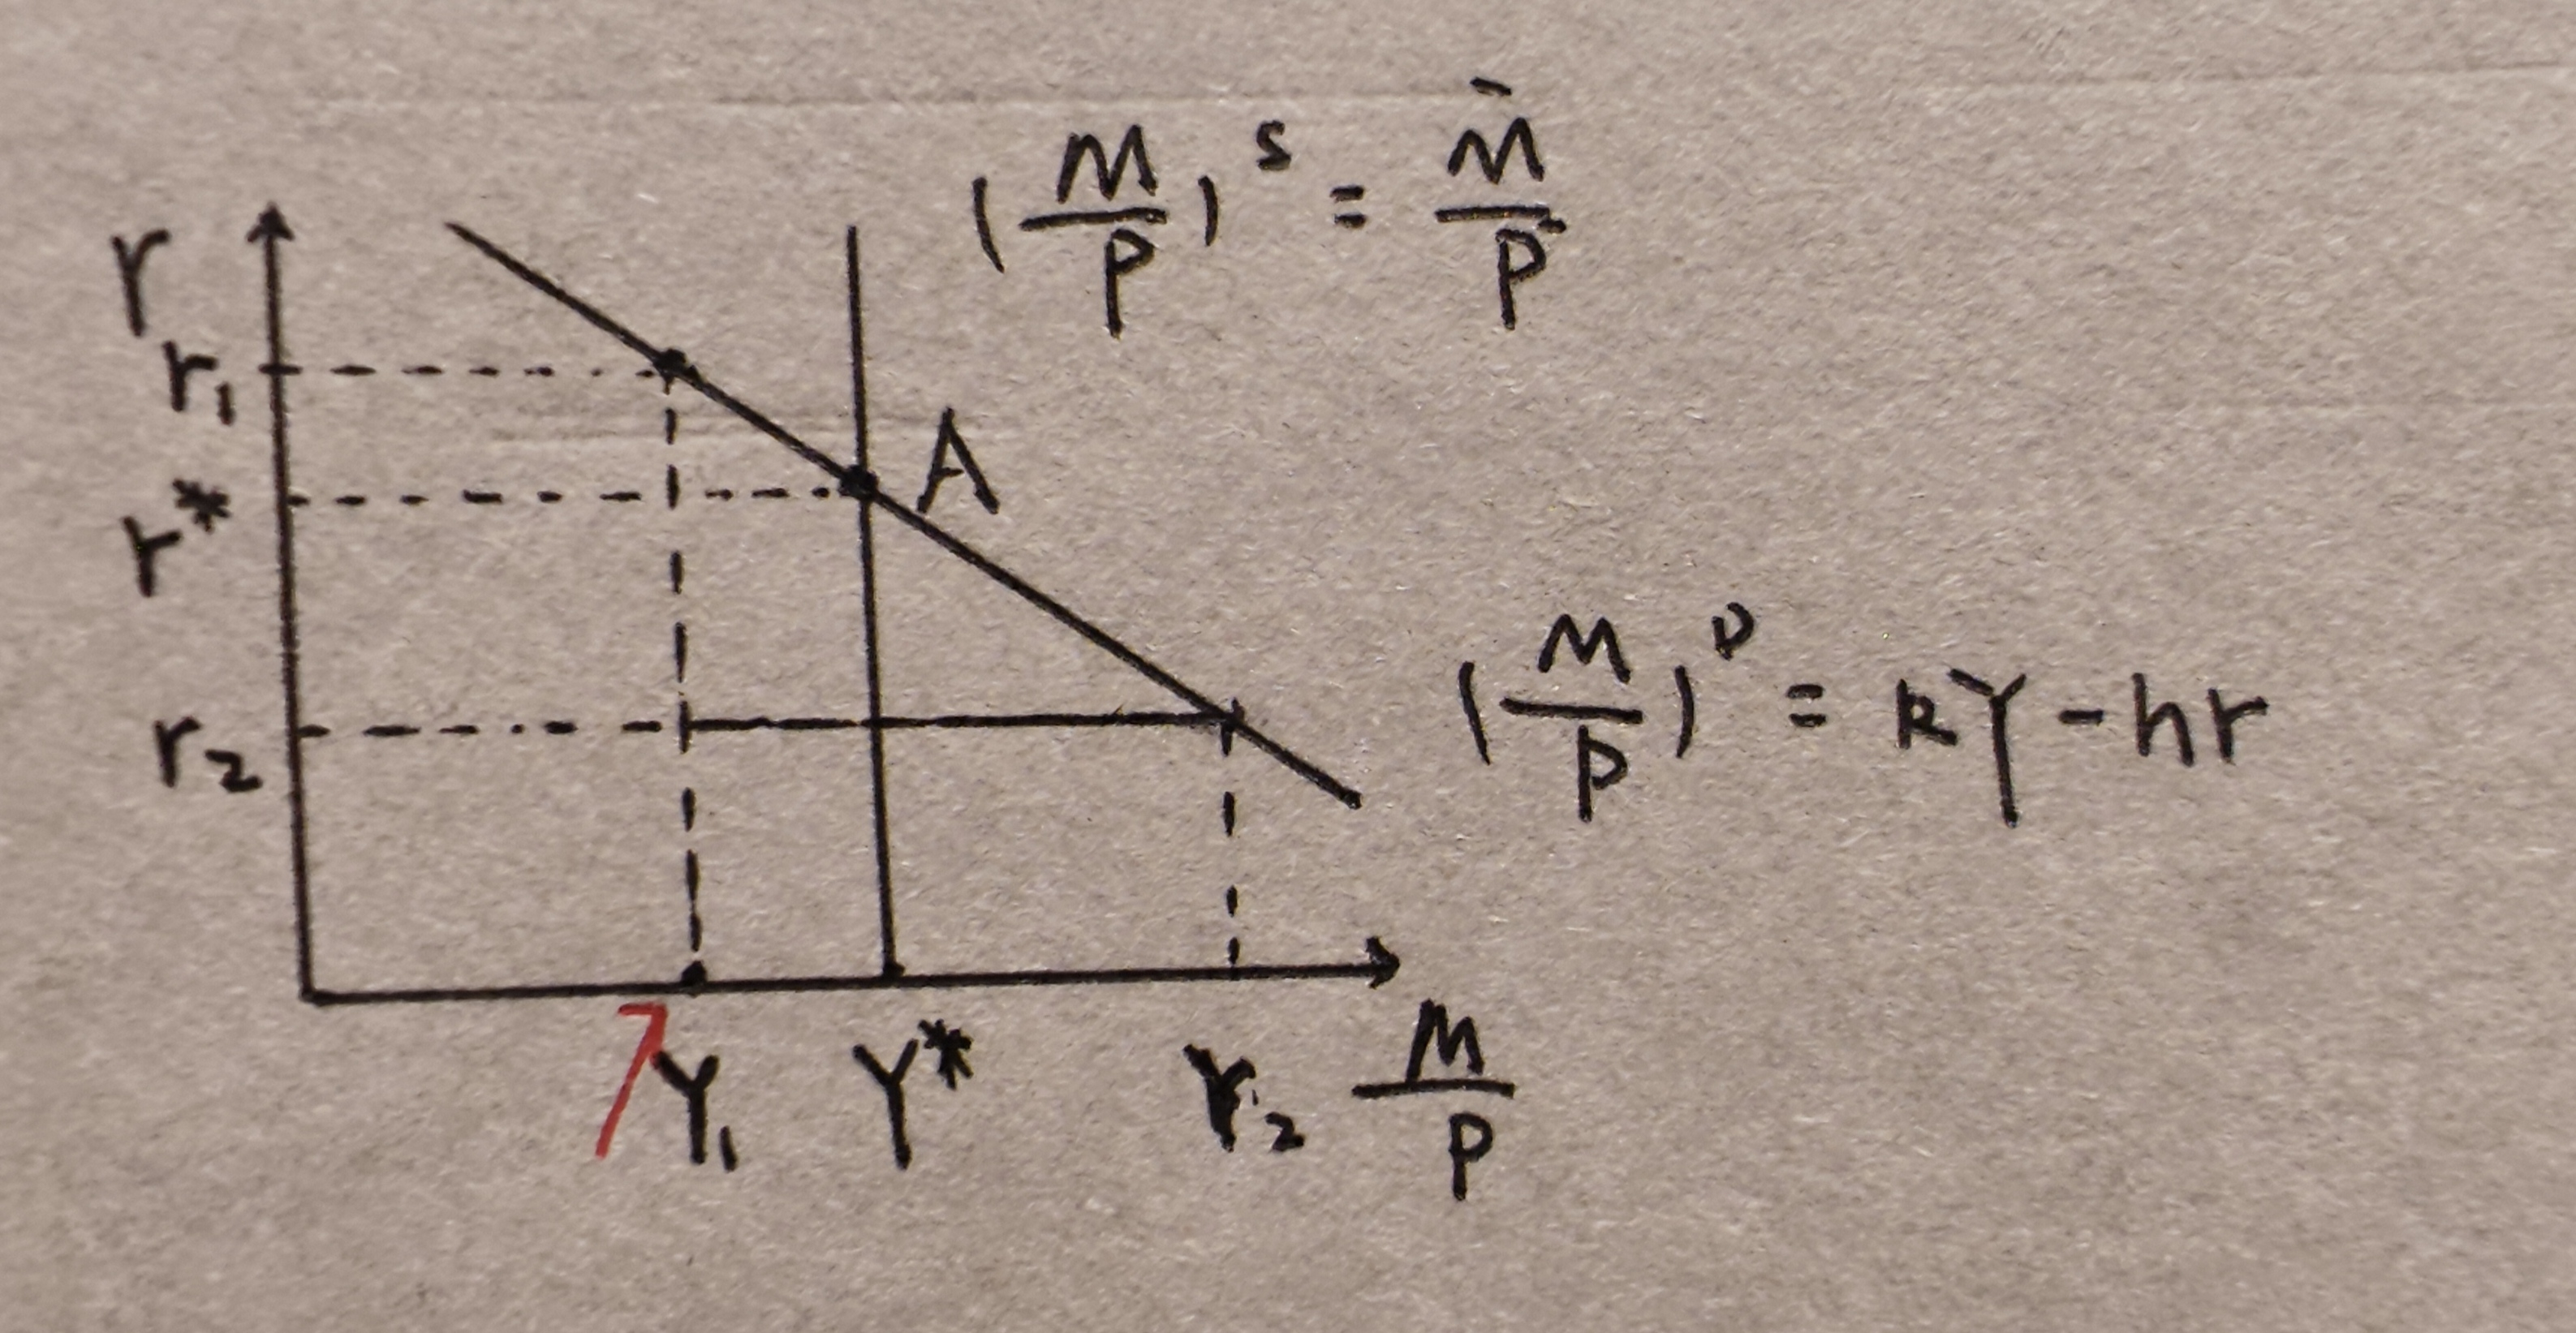 (M/P)^s = M̄/P
r
r₁
A
r*
(M/P)^D = kY - hr
r₂
Y₁ Y* Y₂ M/P